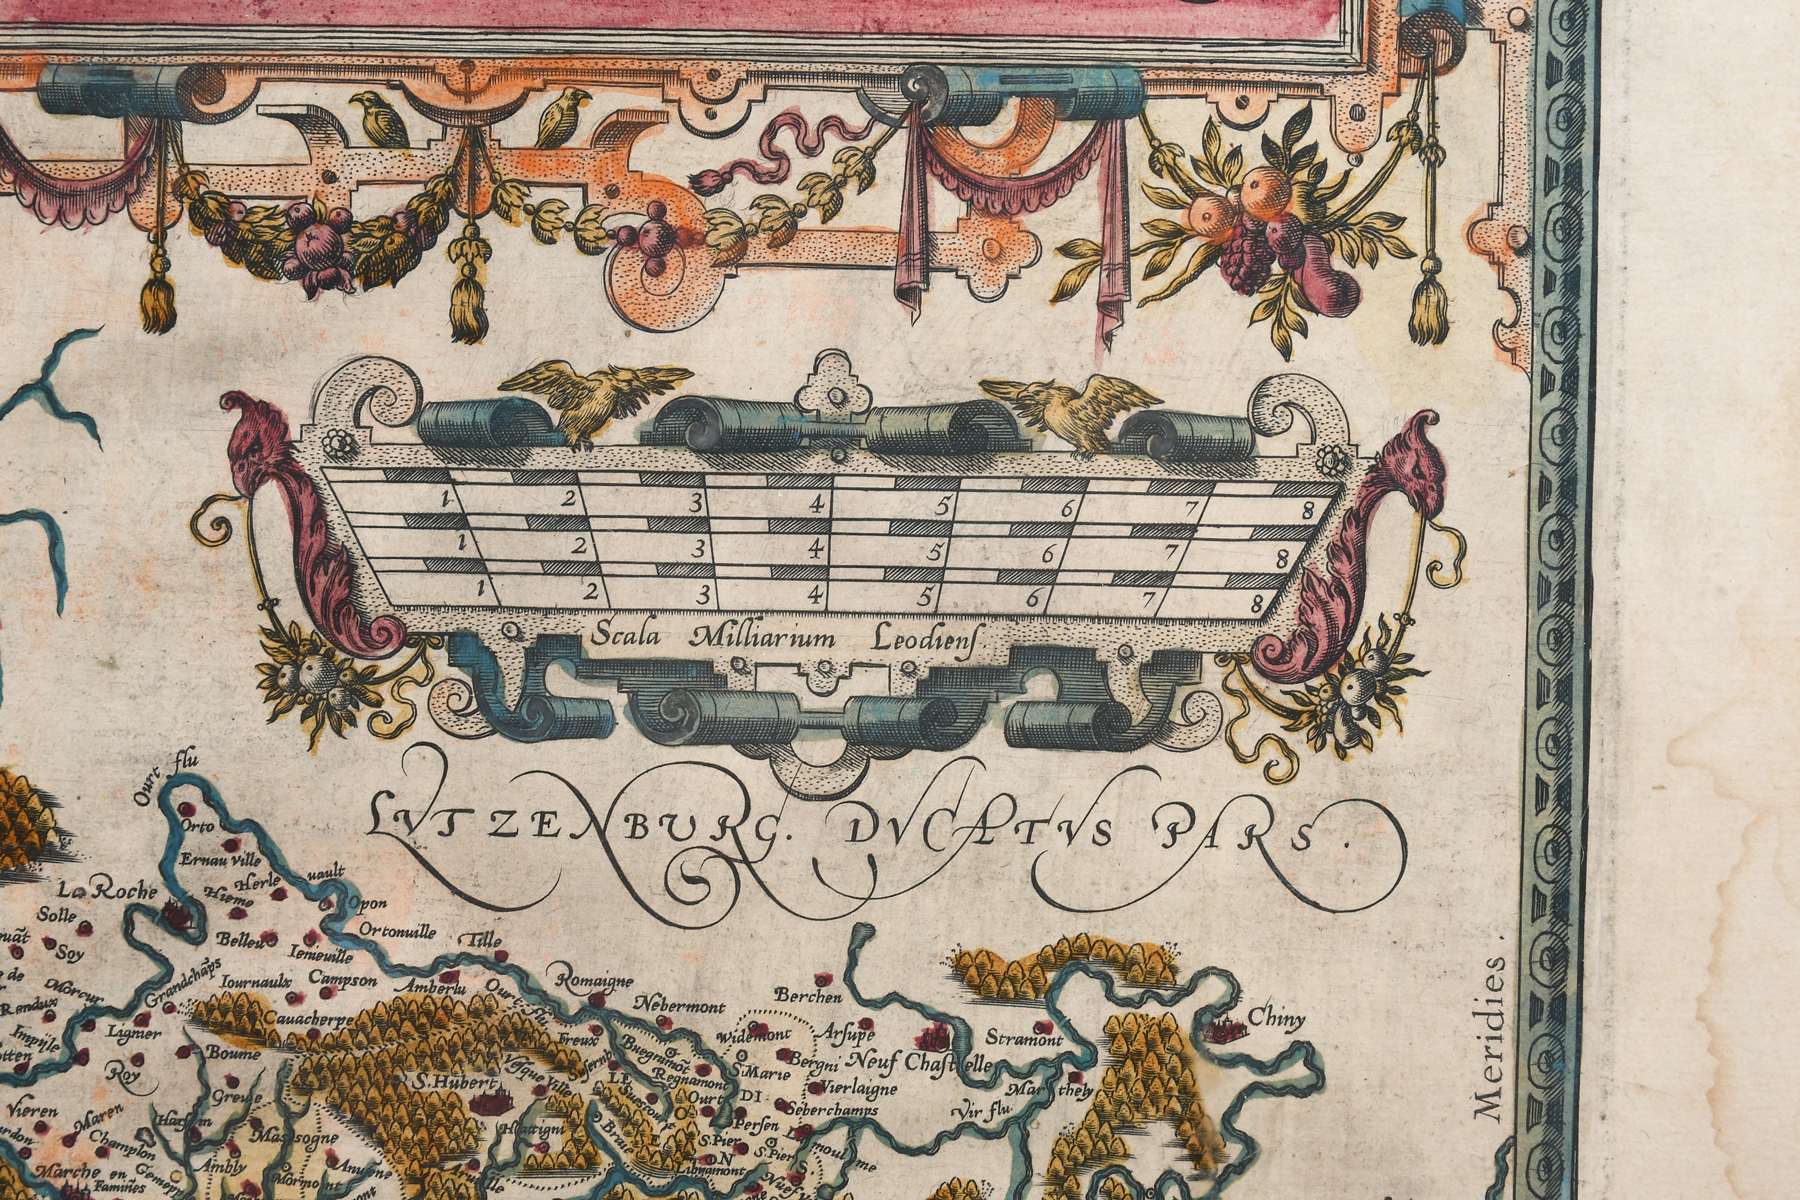 1 2 3 4 5 6 7 8
1 2 3 4 5 6 7 8
1 2 3 4 5 6 7 8
Scala Milliarium Leodiens.
LVTZENBURG. DVCATVS PARS.
Meridies.
Ourt flu
Orto
Ernau ville
Herle
vault
Hieme
La Roche
Opon
Solle
Ortonville
Belleu
Tille
Soy
Iemeville
Grandchāps
Iournaulx
Campson
Amberlu
Ourt flu
Romaigne
Berchen
Morcur
Rendux
Nebermont
Chiny
Lignier
Cauacherpe
Widemont
Arsupe
Stramont
Roy
Boume
Bergni
Neuf Chastelle
S. Marie
Regnamont
S. Hubert
Vesque Ville
Vierlaigne
Mar thely
Greue
Ourt
DI
Seberchamps
Vir flu.
Vieren
Maren
Persen
Hattigni
Massogne
Champlon
S. Pier
S. Pier
Ambly
Marche en
Famines